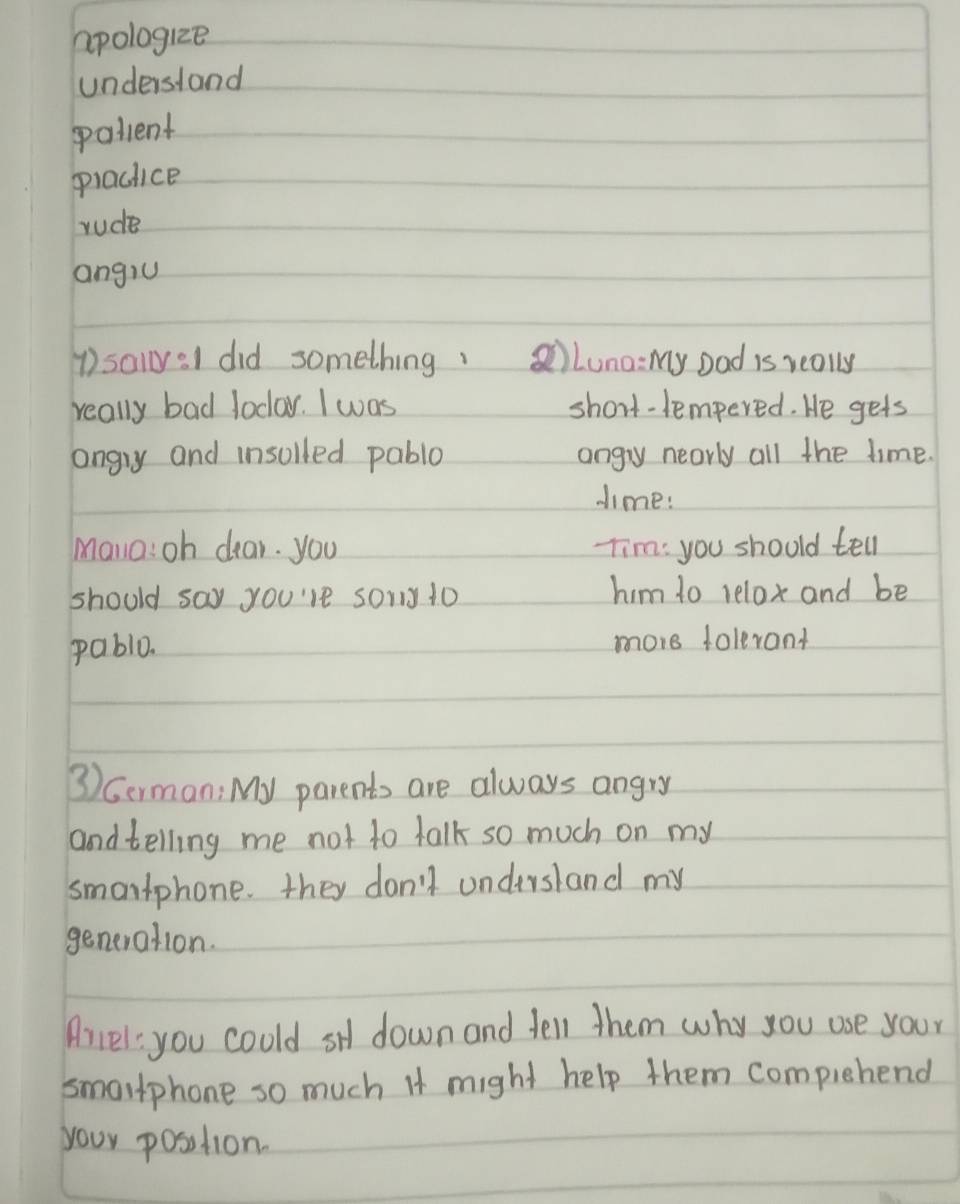 apologize
understand
patient
practice
rude
angry
1) Sally: I did something,
really bad today. I was
angry and insulted pablo
Maria: oh dear. you
should say you're sorry to
pablo.
2) Luna: My Dad is really
short-tempered. He gets
angry nearly all the time.
time:
Tim: you should tell
him to relax and be
more tolerant
3) German: My parents are always angry
and telling me not to talk so much on my
smartphone. they don't understand my
generation.
Ariel: you could sit down and tell them why you use your
smartphone so much it might help them comprehend
your position.